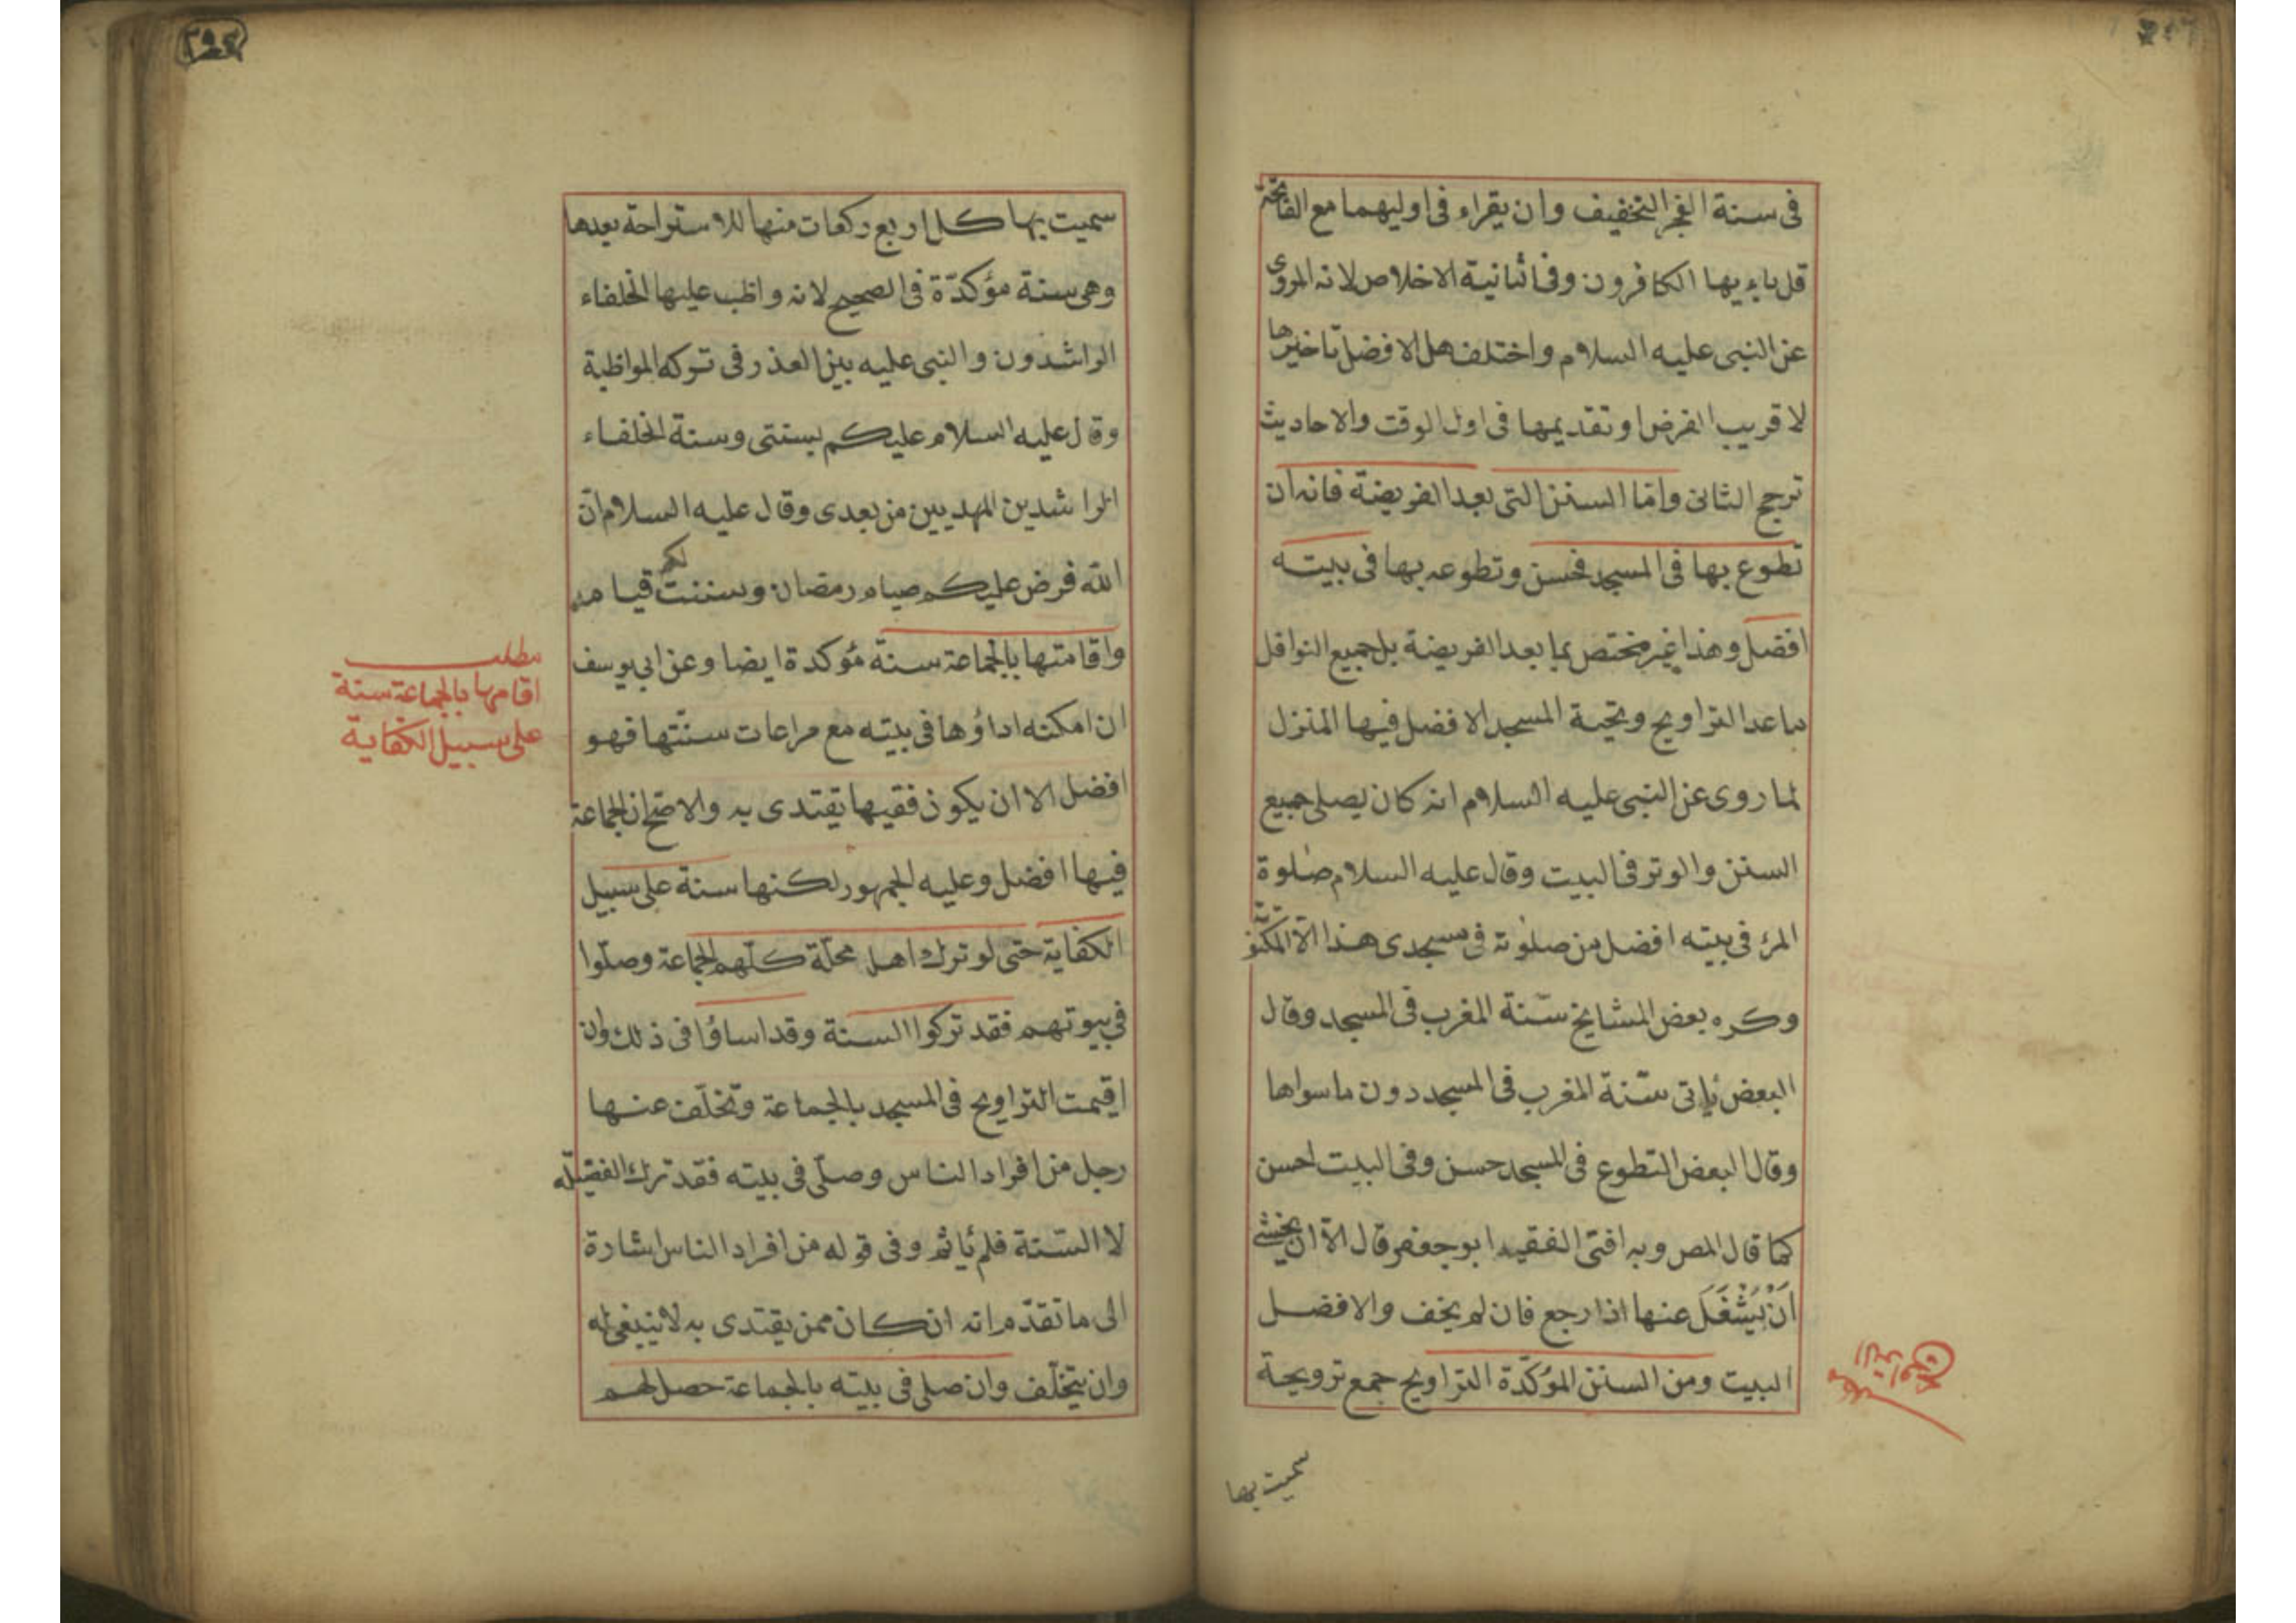 فى سنة الفجر التخفيف وان يقراء فى اوليهما مع الفاتحة
قل ياءيها الكافرون وفى الثانية الاخلاص لانه المروى
عن النبى عليه السلام واختلف هل الافضل تاخيرها
لا قريب الفرض او تقديمها فى اول الوقت والاحاديث
ترجح الثانى وامّا السنن التى بعد الفريضة فانه ان
تطوع بها فى المسجد فحسن وتطوعه بها فى بيته
افضل وهذا غير مختص بما بعد الفريضة بل جميع النوافل
ماعد التراويح وتحية المسجد الافضل فيها المنزل
لما روى عن النبى عليه السلام انه كان يصلى جميع
السنن والوتر فى البيت وقال عليه السلام صلوة
المرء فى بيته افضل من صلوته فى مسجدى هذا الاّ المكتو
وكره بعض المشايخ سنّة المغرب فى المسجد وقال
البعض يأتى سنّة المغرب فى المسجد دون ماسواها
وقال البعض التطوع فى المسجد حسن وفى البيت احسن
كما قال المص وبه افتى الفقيه ابو جعفر قال الاّ ان يخشى
اَنْ يُشْغَلَ عنها اذا رجع فان لم يخف والافضل
البيت ومن السنن المؤكّدة التراويح جمع ترويحة
سميت بها
٢٩٤
سميت بها كل اربع ركعات منها للاستراحة بعدها
وهى سنة مؤكدّة فى الصحيح لانه واظب عليها الخلفاء
الراشدون والنبى عليه بين العذر فى تركه المواظبة
وقال عليه السلام عليكم بسنتى وسنة الخلفاء
الراشدين المهديين من بعدى وقال عليه السلام انّ
الله فرض عليكم صيام رمضان وسننت لكم قيامه
واقامتها بالجماعة سنة مؤكدة ايضا وعن ابى يوسف
ان امكنه اداؤها فى بيته مع مراعات سنّتها فهو
افضل الا ان يكون فقيها يقتدى به والاصح ان الجماعة
فيها افضل وعليه الجمهور لكنها سنة على سبيل
الكفاية حتى لو ترك اهل محلّة كلّهم الجماعة وصلّوا
فى بيوتهم فقد تركوا السنة وقد اساؤا فى ذلك وان
اقيمت التراويح فى المسجد بالجماعة وتخلّف عنها
رجل من افراد الناس وصلّى فى بيته فقد ترك الفضيلة
لا السّنة فلم يأثم وفى قوله من افراد الناس اشارة
الى ما تقدّم انه ان كان ممن يقتدى به لا ينبغى له
وان يتخلّف وان صلى فى بيته بالجماعة حصل لهم
مطلب
اقامتها بالجماعة سنة
على سبيل الكفاية